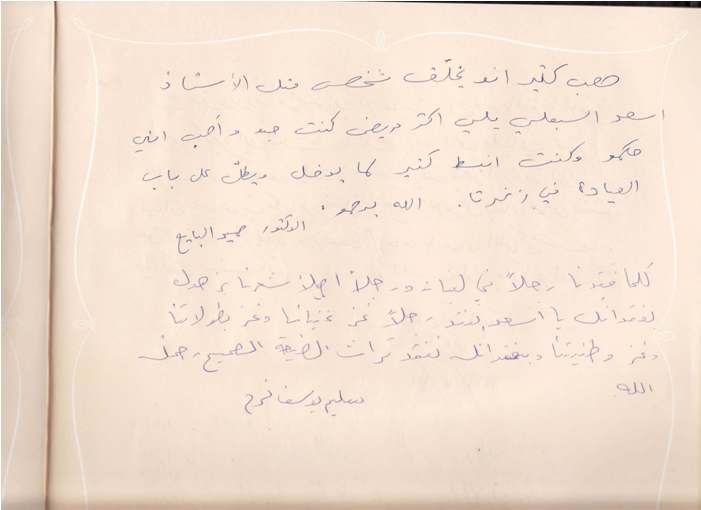 صعب كتير انو يخلّف شخص متل الأستاذ
اسعد السبعلي يلي اكتر مريض كنت حب و أحب اني
حكمو وكنت انبسط كتير لما يدخل ويطلّ على باب
العيادة في زغرتا. الله يرحمو.
الدكتور حميد البايع
كلما فقدنا رجلاً في لبنان ورجلاً
بفقدانك يا اسعد نفتقد رجلاً عن عن بطولاتنا
وعن وطنيتنا وبفقدانك نفقد تراث الضيعة الصميم رحمك
الله.
سليم يوسف فرح